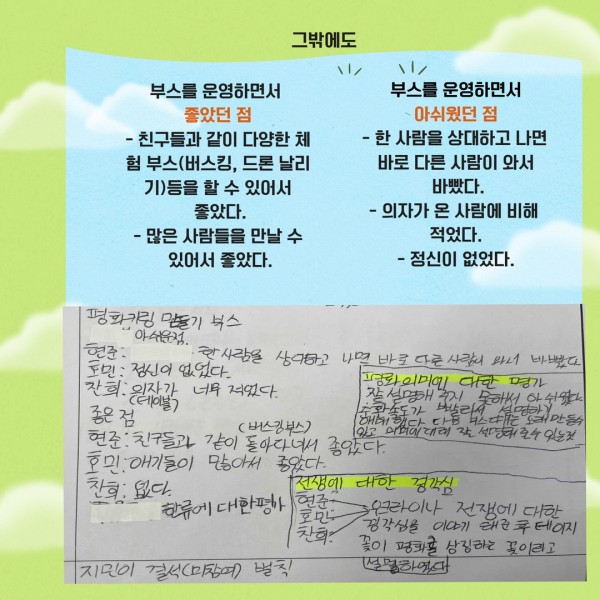 그밖에도
부스를 운영하면서
좋았던 점
- 친구들과 같이 다양한 체
험 부스(버스킹, 드론 날리
기)등을 할 수 있어서
좋았다.
- 많은 사람들을 만날 수
있어서 좋았다.
부스를 운영하면서
아쉬웠던 점
- 한 사람을 상대하고 나면
바로 다른 사람이 와서
바빴다.
- 의자가 온 사람에 비해
적었다.
- 정신이 없었다.
평화키링 만들기 부스
아쉬운점.
현준: 한 사람을 상대하고 나면 바로 다른 사람이 와서 바빴다
호민: 정신이 없었다.
찬희: 의자가 너무 적었다.
(테이블)
좋은 점 (버스킹부스)
현준: 친구들과 같이 돌아다녀서 좋았다.
호민: 애기들이 많아서 좋았다.
찬희: 없다.
한류에 대한평가
평화의미에 대한 평가
잘 설명해 주지 못해서 아쉬웠다.
전쟁에 대한 경각심
현준:
호민:
찬희:
우크라이나 전쟁에 대한
경각심을 이야기
꽃이 평화를 상징하는 꽃이라고
설명하였다
지민이 결석(미참여) 벌칙